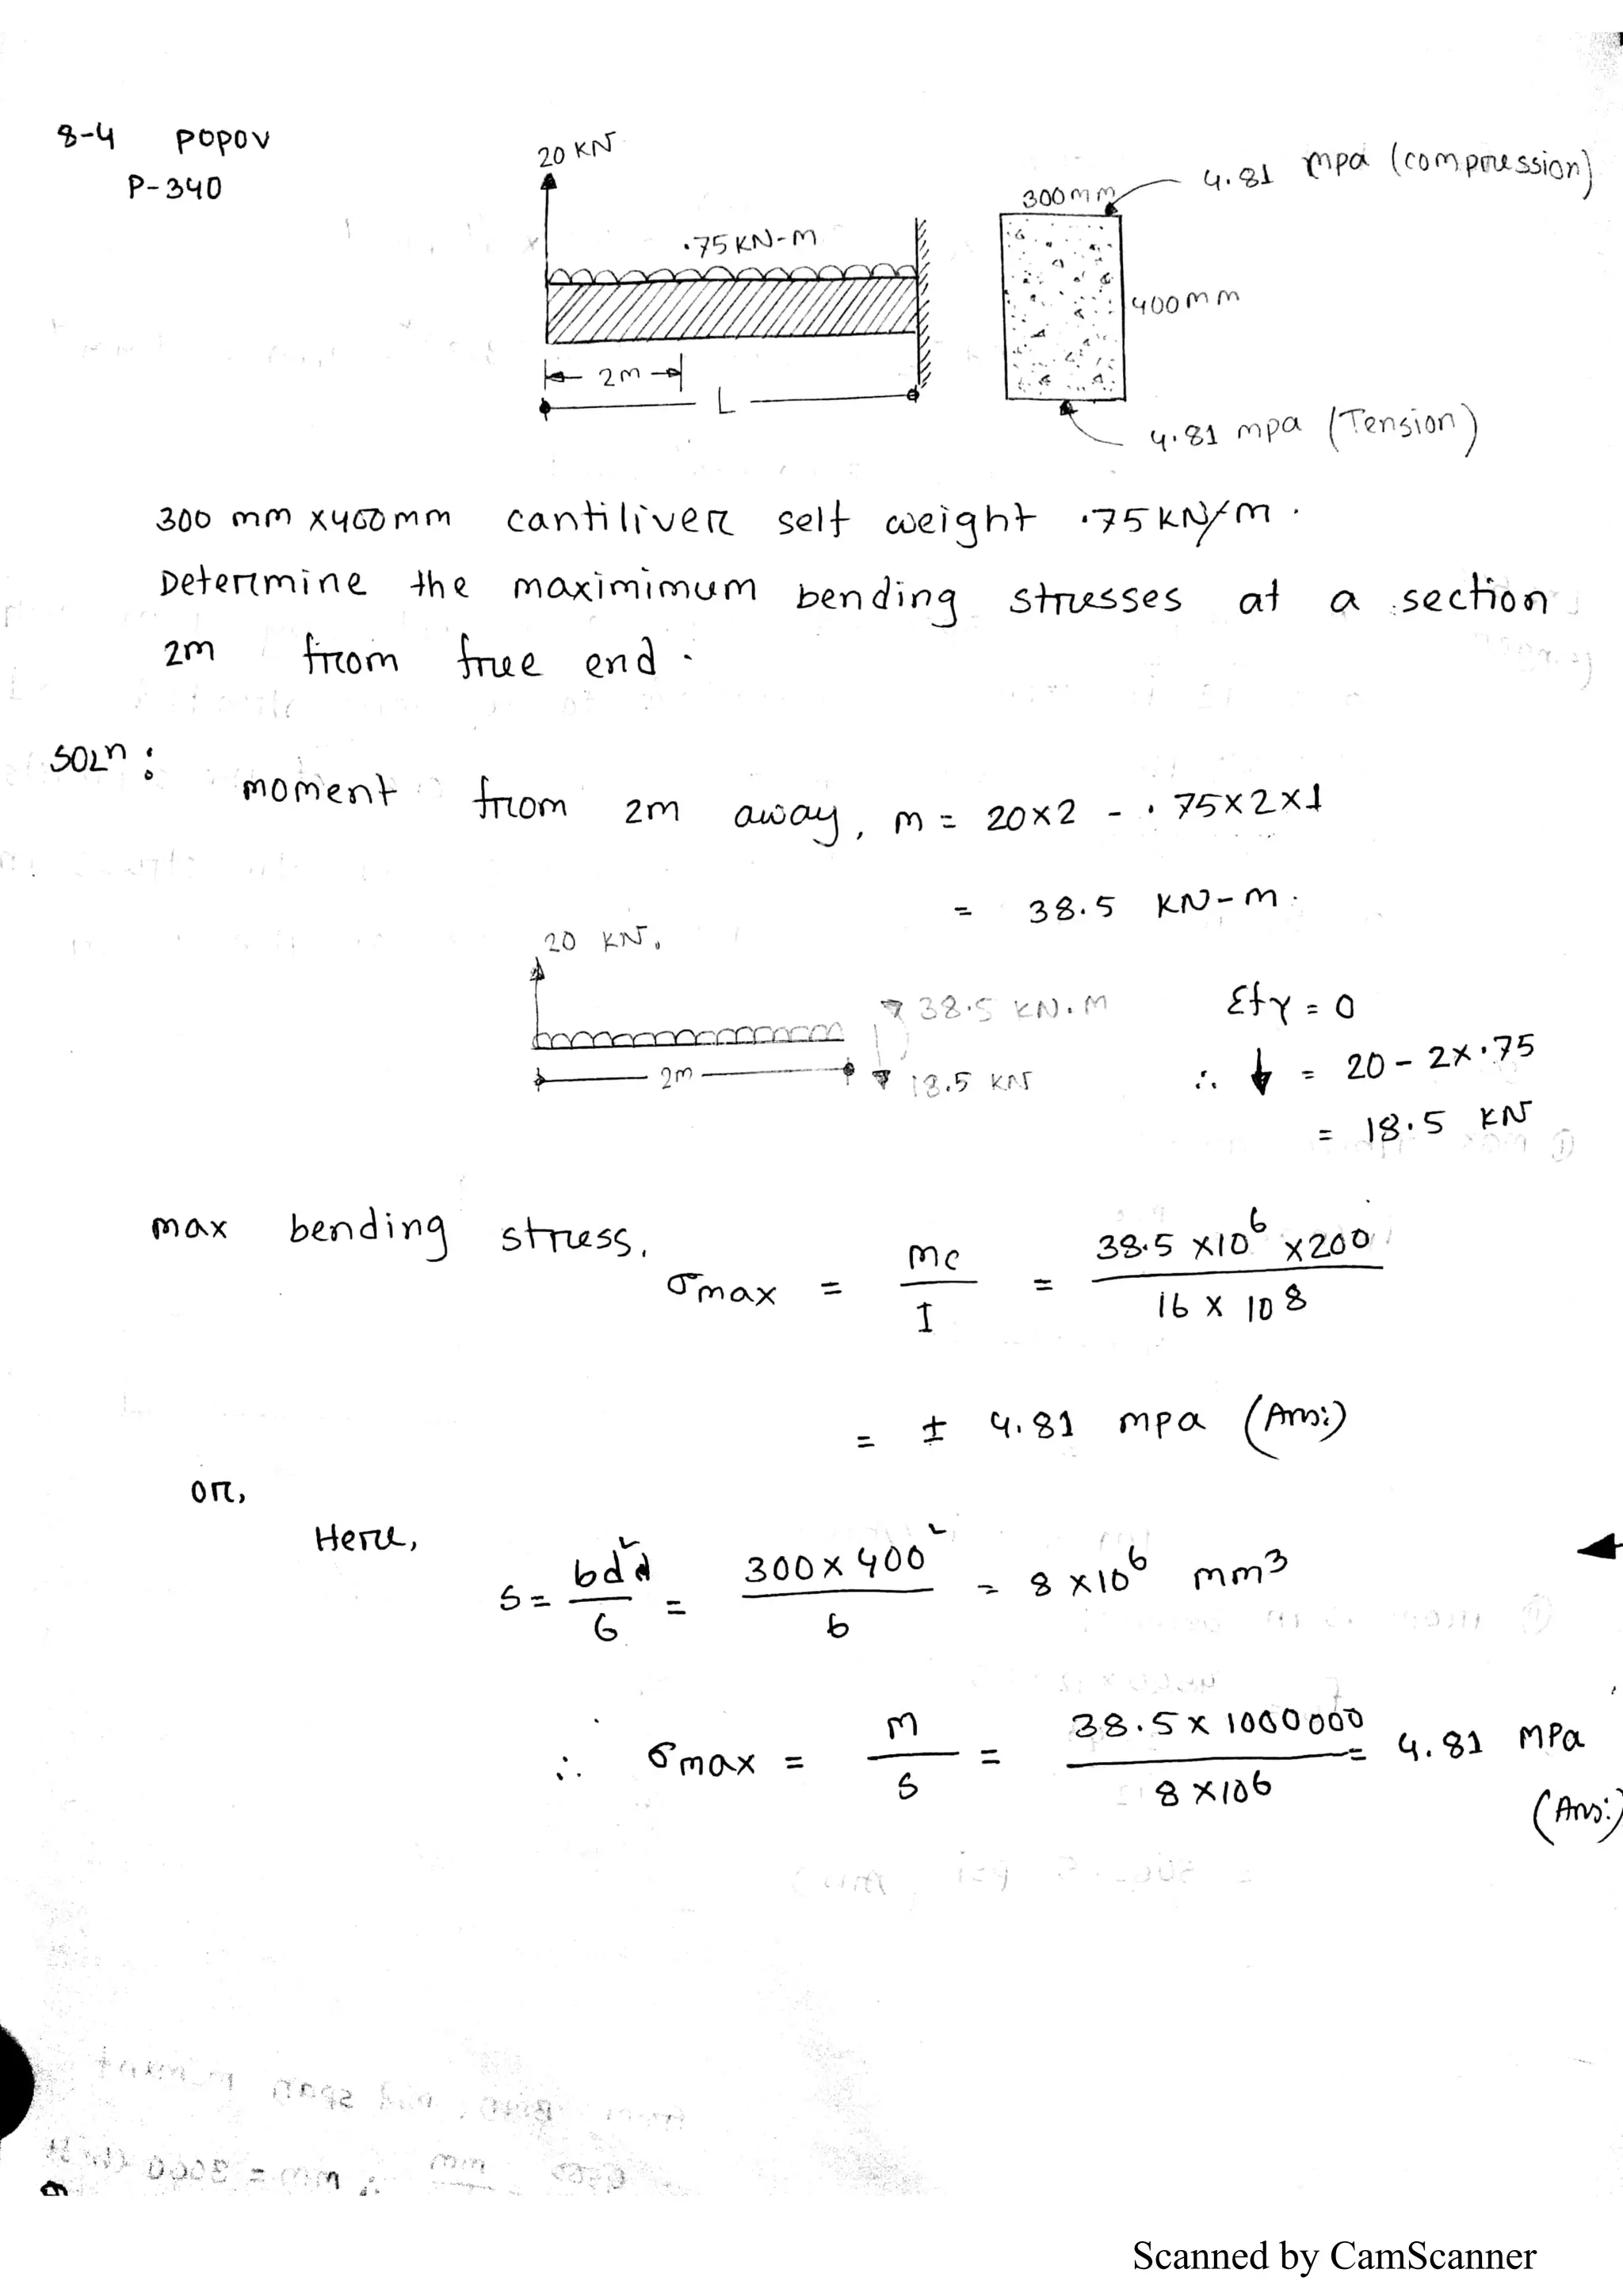 8-4 POPOV
P-340
20 KN
.75 KN-M
2m
L
300mm
400mm
4.81 mpa (compression)
4.81 mpa (Tension)
300 mm x400mm cantiliver self weight .75 KN/m.
Determine the maximimum bending stresses at a section
2m from free end.
SOLⁿ:
moment from 2m away, m = 20x2 - .75x2x1
= 38.5 KN-m.
20 KN.
38.5 KN.M
2m
18.5 KN
Σfy = 0
∴ ↓ = 20 - 2x.75
= 18.5 KN
max bending stress,
σmax = mc/I = 38.5 x10⁶ x200 / 16 x 10⁸
= ± 4.81 mpa (Ans:)
or,
Here,
s = bd²/6 = 300x400²/6 = 8 x10⁶ mm³
∴ σmax = m/s = 38.5x1000000 / 8x10⁶ = 4.81 MPa
(Ans:)
Scanned by CamScanner